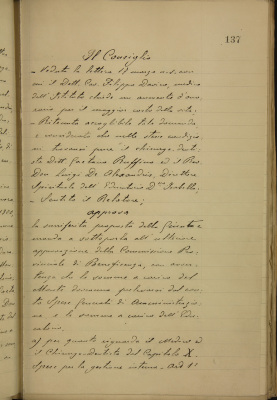 137
Il Consiglio
- Veduta la lettera 17 marzo con
cui il Dott. Cav. Filippo Davico, medico
dell'Istituto chiede un aumento d'ono-
rario per il maggior
- Ritenuta accoglibile tale domanda
e considerato che nelle stesse condizio-
ni trovansi pure il chirurgo denti-
sta Dott. Gaetano Ruffino ed il Rev.
Don Luigi De Alexandris, Direttore
Spirituale dell'Educatorio Duc. Isabella;
- Sentito il Relatore;
approva
la suriferita proposta della Giunta e
manda a sottoporla all'ulteriore
approvazione della Commissione Pro-
vinciale di Beneficenza, con avver-
tenza che la somma a carico del
dovranno prelevarsi dal con-
to Spese Generali di Amministrazio-
ne, e la somma a carico dell'Edu-
catorio.
a) per quanto riguarda il Medico ed
il Chirurgo-Dentista dal Capitolo X.
Spese per la gestione interna - Art. 1°